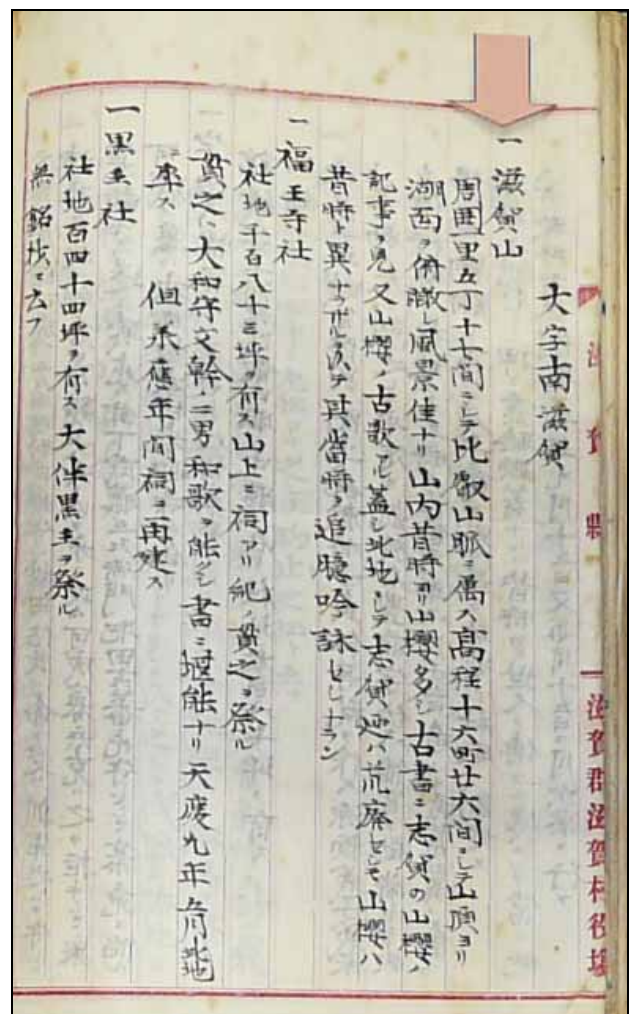 滋賀縣
滋賀郡滋賀村役場
大字南滋賀
一滋賀山
周囲一里五丁十七間ニシテ比叡山脈ニ属ス高程十六町廿六間ニシテ山頂ヨリ
湖西ヲ俯瞰シ風景佳ナリ山内昔時ヨリ山櫻多シ古書ニ志賀の山櫻ノ
記事ヲ見又山櫻ノ古歌アルモ蓋シ此地ニシテ志賀廼ハ荒廃セシモ山櫻ハ
昔時ト異ナラザルヲ以テ其當時ヲ追憶吟詠セシナラン
一福王寺社
社地千百八十三坪ヲ有ス山上ニ祠アリ紀ノ貫之ヲ祭ル
貫之ハ大和守文幹ノ二男和歌ヲ能クシ書ニ堪能ナリ天慶九年 此地
ニ卒ス 但承應年間祠ヲ再建ス
一黒主社
社地百四十四坪ヲ有ス大伴黒主ヲ祭ル
無銘 ニ云フ